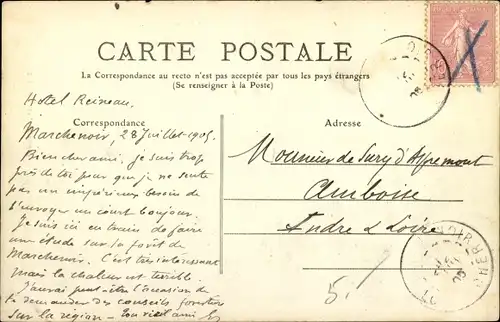 CARTE POSTALE
La Correspondance au recto n'est pas acceptée par tous les pays étrangers
(Se renseigner à la Poste)
Hotel Reineau.
Correspondance
Adresse
Marchenoir, 28 Juillet-1905.
Bien cher ami. Je suis trop
près de toi pour que je ne sente
pas un impérieux besoin de
t'envoyer un court bonjour.
Je suis ici en train de faire
une étude sur la forêt de
Marchenoir. C'est très intéressant
mais la chaleur est terrible.
J'aurai peut-être l'occasion de
te demander des conseils forestiers
sur la région - Ton vieil ami
Monsieur de Sury d'Aspremont
Amboise
Indre & Loire
5./